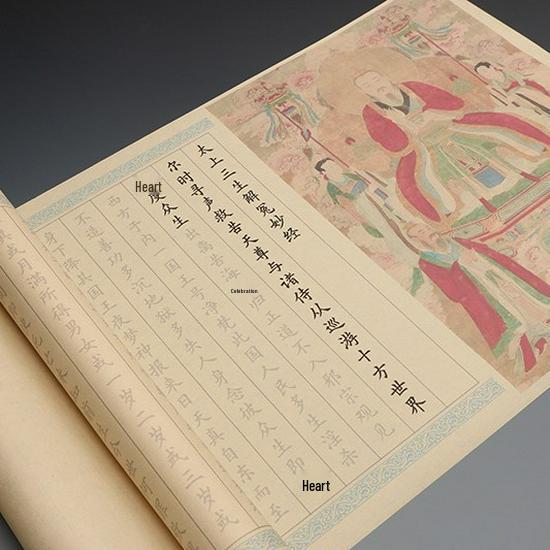 太上三生解冤妙经
尔时寻声救苦天尊与诸侍从巡游十方世界
Heart
度众生出离苦海
Celebration
归正道不入邪宗观见
西方于内一国王号净梵此国人民多生淫杀
不道善功多沉地狱多失人身念彼众生即
身下降其国王夜梦神报来日天真自东而至
或月满所得男女或一岁或二岁或三岁或
Heart